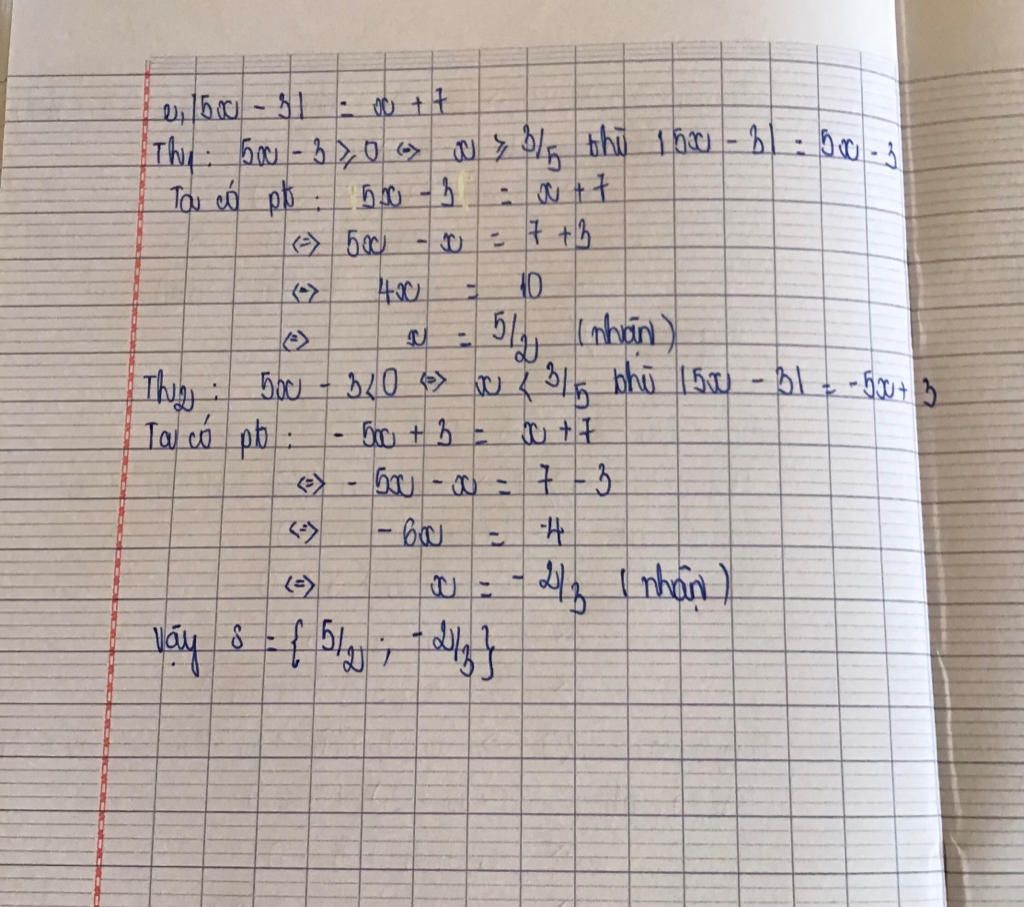 e, |5x - 3| = x + 7
TH1: 5x - 3 ≥ 0 <=> x ≥ 3/5 thì |5x - 3| = 5x - 3
Ta có pt : 5x - 3 = x + 7
<=> 5x - x = 7 + 3
<=> 4x = 10
<=> x = 5/2 (nhận)
TH2 : 5x - 3 < 0 <=> x < 3/5 thì |5x - 3| = -5x + 3
Ta có pt : - 5x + 3 = x + 7
<=> - 5x - x = 7 - 3
<=> - 6x = 4
<=> x = - 2/3 (nhận)
Vậy S = { 5/2 ; - 2/3 }